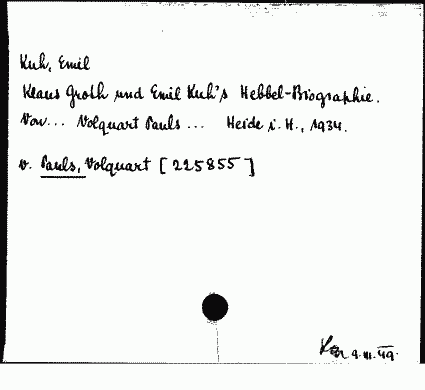 Kuh, Emil
Klaus Groth und Emil Kuh's Hebbel-Biographie.
Von... Volquart Pauls ... Heide i. H., 1934.
v. Pauls, Volquart [225855]
9.III.49.